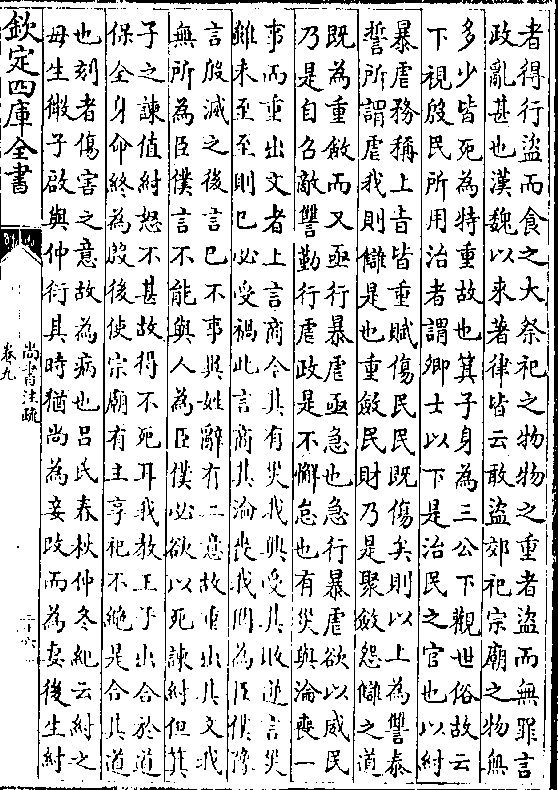 者得行盜而食之大祭祀之物物之重者盜而無罪言
政亂甚也漢魏以來著律皆云敢盜郊祀宗廟之物無
多少皆死為特重故也箕子身為三公下觀世俗故云
下視殷民所用治者謂卿士以下是治民之官也以紂
暴虐務稱上旨皆重賦傷民民既傷矣則以上為讐泰
誓所謂虐我則讎是也重斂民財乃是聚斂怨讎之道
既為重斂而又亟行暴虐亟急也急行暴虐欲以威民
乃是自召敵讐勤行虐政是不懈怠也有災與淪喪一
事而重出文者上言商今其有災我興受其敗逆言災
雖未至至則已必受禍此言商其淪喪我罔為臣僕豫
言殷滅之後言已不事異姓辭有二意故重出其文我
無所為臣僕言不能與人為臣僕必欲以死諫紂但箕
子之諫值紂怒不甚故得不死耳我教王子出合於道
保全身命終為殷後使宗廟有主享祀不絶是合其道
也刻者傷害之意故為病也吕氏春秋仲冬紀云紂之
母生微子啟與仲衍其時猶尚為妾改而為妻後生紂
欽定四庫全書
尚書注疏
卷九
二十六